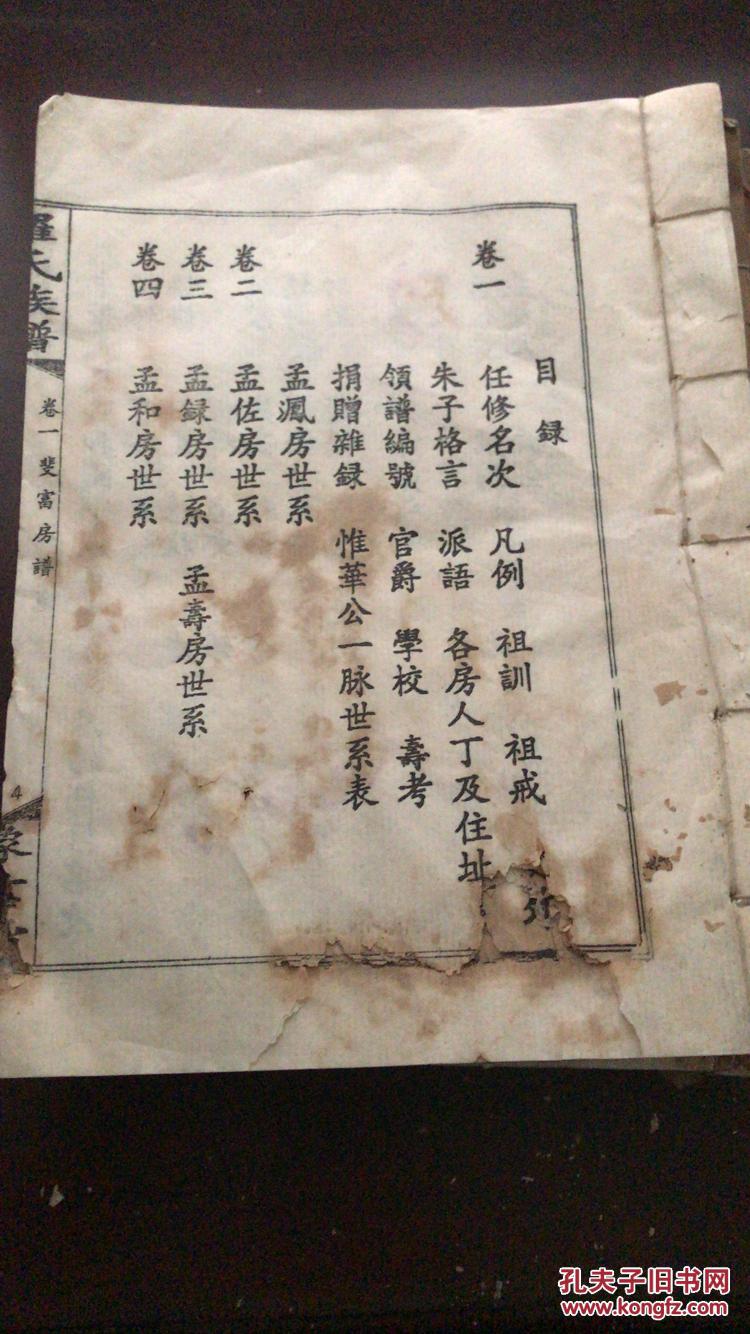 目録
卷一
任修名次 凡例 祖訓 祖戒
朱子格言 派語 各房人丁及住址
領譜編號 官爵 學校 壽考
捐贈雜録 惟華公一脉世系表
孟鳳房世系
卷二 孟佐房世系
卷三 孟録房世系 孟壽房世系
卷四 孟和房世系
羅氏族譜
卷一 斐富房譜
4
孔夫子旧书网
www.kongfz.com